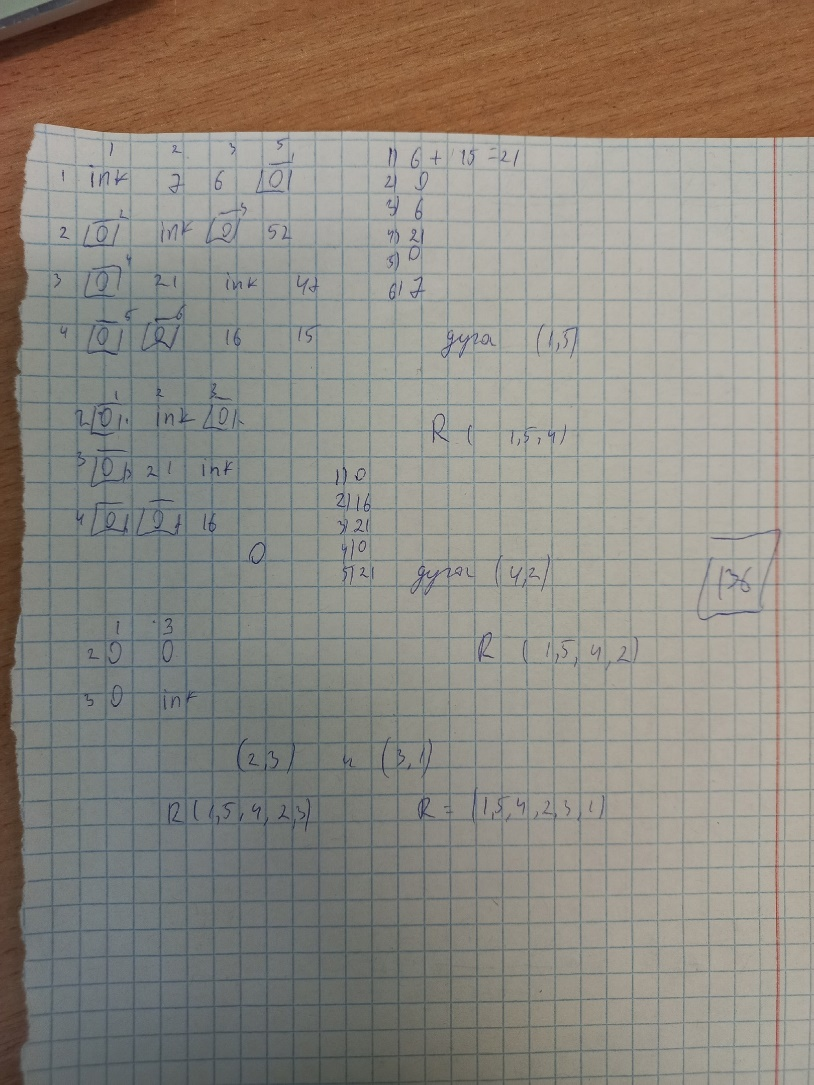 1 2 3 5
1 ink 7 6 0 1
2 0 2 ink 0 3 52
3 0 4 21 ink 47
4 0 5 0 6 16 15
1) 6 + 15 = 21
2) 0
3) 6
4) 21
5) 0
6) 7
дуга (1,5)
1 2 3
2 0 ink 0
3 0 21 ink
4 0 0 16
0
R ( 1,5,4)
1) 0
2) 16
3) 21
4) 0
5) 21
дуга (4,2)
136
1 3
2 0 0
3 0 ink
R ( 1,5,4,2)
(2,3) и (3,1)
R (1,5,4,2,3) R = (1,5,4,2,3,1)